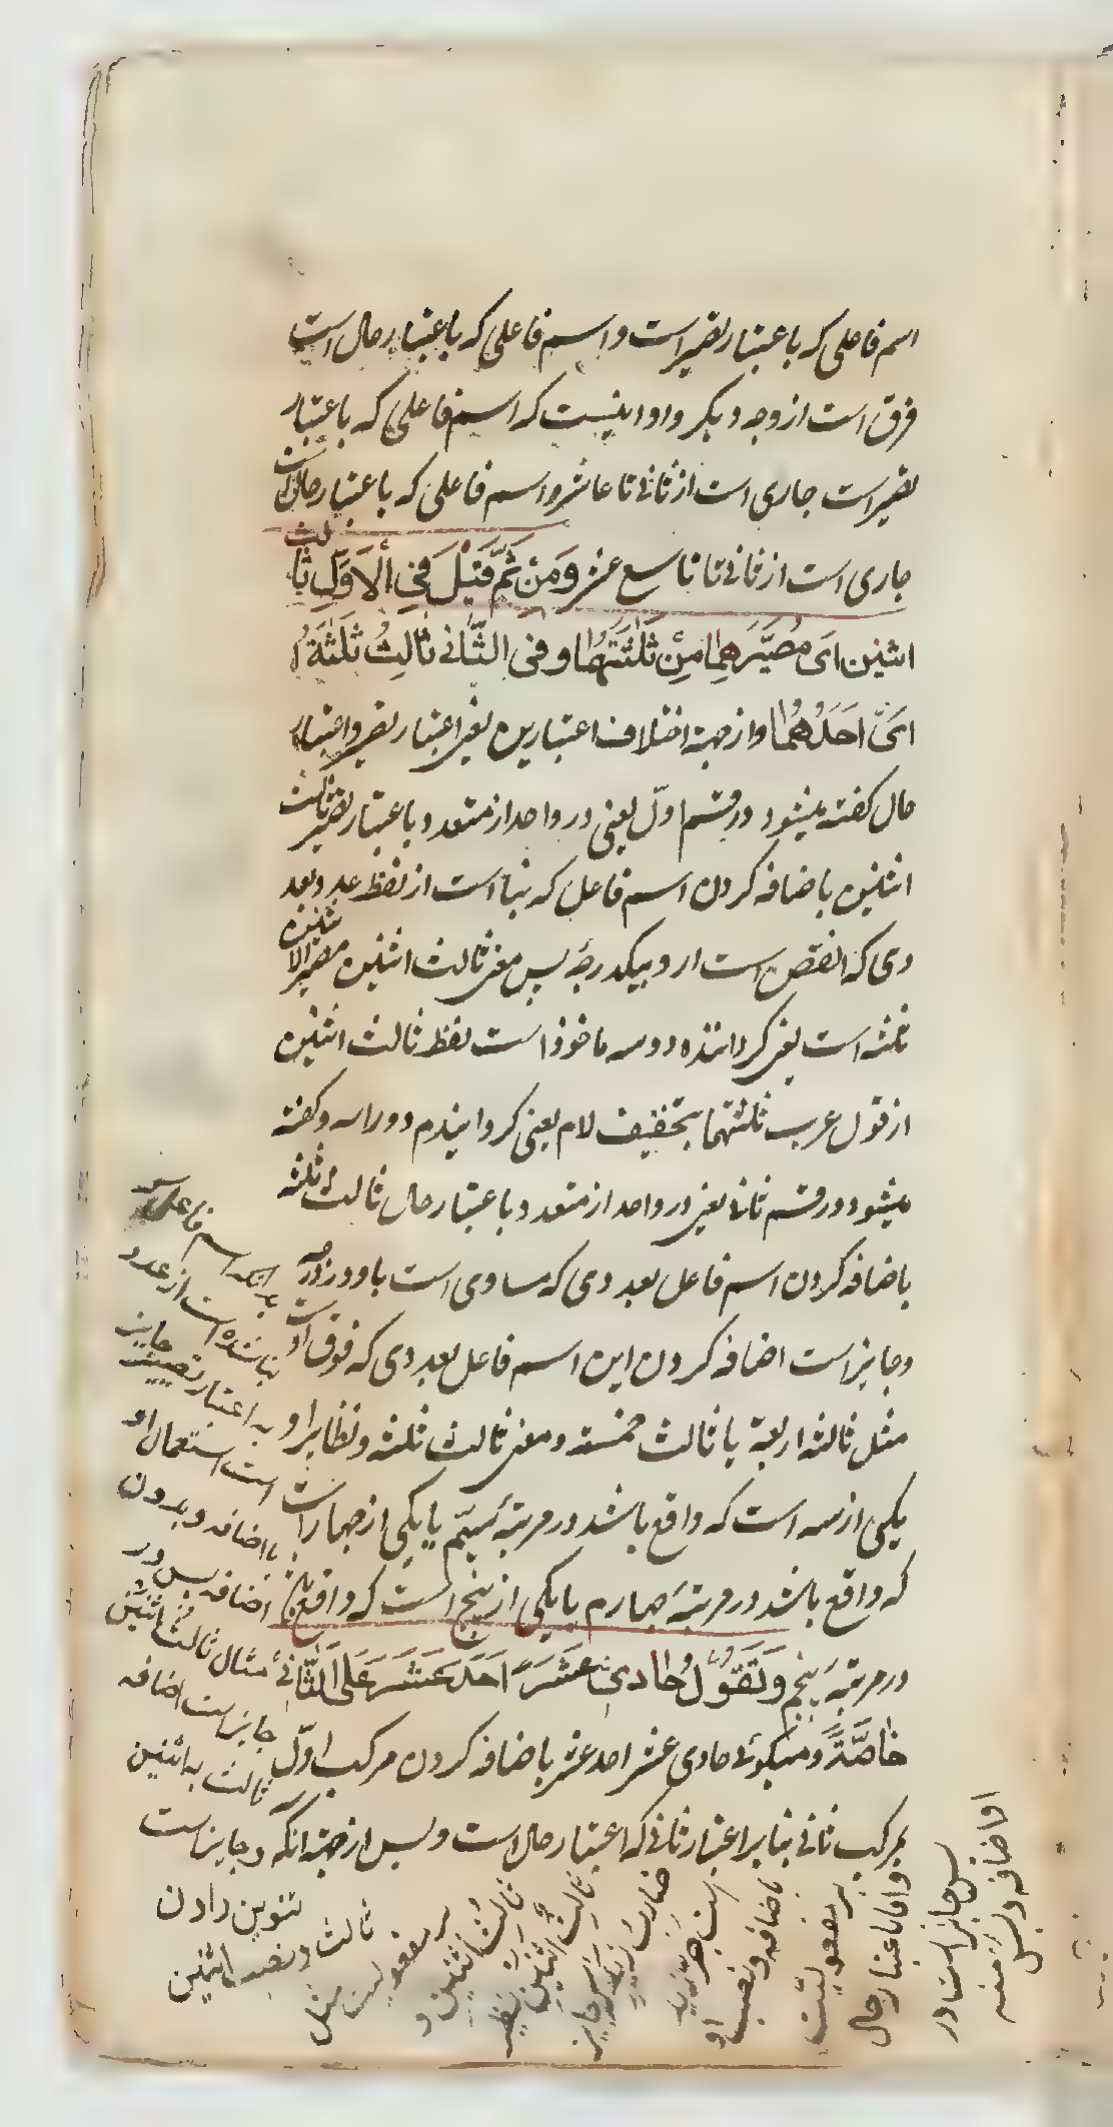 اسم فاعلی که باعتبار تصییر است و اسم فاعلی که باعتبار حال است
فرق است از وجه دیگر و او اینست که اسم فاعلی که باعتبار
تصییر است جاری است از ثانی تا عاشر و اسم فاعلی که باعتبار حال است
جاری است از ثانی تا تاسع عشر وَمَنْ ثَمَّ قِیْلَ فِی الْاَوَّلِ ثالث
اثنین اَی مُصَیِّرُهما مِنْ ثَلٰثَتُهُما و فی الثّانی ثالِثُ ثَلٰثَةٍ
اَیْ اَحَدُهُما و از جهة اختلاف اعتبارین یعنی اعتبار تصییر و اعتبار
حال گفته میشود در قسم اوّل یعنی در واحد از متعدد باعتبار تصییر ثالث
اثنین باضافه کردن اسم فاعل که بنا است از لفظ عدد بعد
دی که انقص است از و بیکدرجه پس معنی ثالث اثنین مصیر الاثنین
ثلثه است یعنی گرداننده دو سه ماخوذ است لفظ ثالث اثنین
از قول عرب ثلثتهما بتخفیف لام یعنی گردانیدم دو را سه و گفته
میشود در قسم ثانی یعنی در واحد از متعدد باعتبار حال ثالث ثلثه
باضافه کردن اسم فاعل بعددی که مساوی است باو در
و جایز است اضافه کردن این اسم فاعل بعددی که فوق اوست
مثل ثالث اربعة یا ثالث خمسة و معنی ثالث ثلثه و نظایر او
یکی از سه است که واقع باشد در مرتبهٔ سیّم یا یکی از چهار است
که واقع باشد در مرتبهٔ چهارم یا یکی از پنج است که واقع باشد
در مرتبهٔ پنجم وَتَقُوْلُ حادی عَشَرَ اَحَدَ عَشَرَ عَلَی الثّانی
خاصَّةً و میگوئی حادی عشر احد عشر باضافه کردن مرکب اوّل
بمرکب ثانی بنابر اعتبار ثانی که اعتبار حال است و بس از جهة آنکه
بدانکه اسم فاعلی
بنا شده است از عدد
به اعتبار تصییر جایز
است استعمال او
با اضافه و بدون
اضافه پس در
مثال ثالث اثنین
جایز است اضافه
ثالث به اثنین
و جایز است
تنوین دادن
ثالث و نصب اثنین
بر مفعولیت مثل
ثالثُ اثنین و
ثالثٌ اثنین نظیر
ضاربُ زید پس جایز
است جر زید
باضافه و نصب او
بر مفعولیّت
و اما باعتبار حال
پس جایز است در
او اضافه و بس